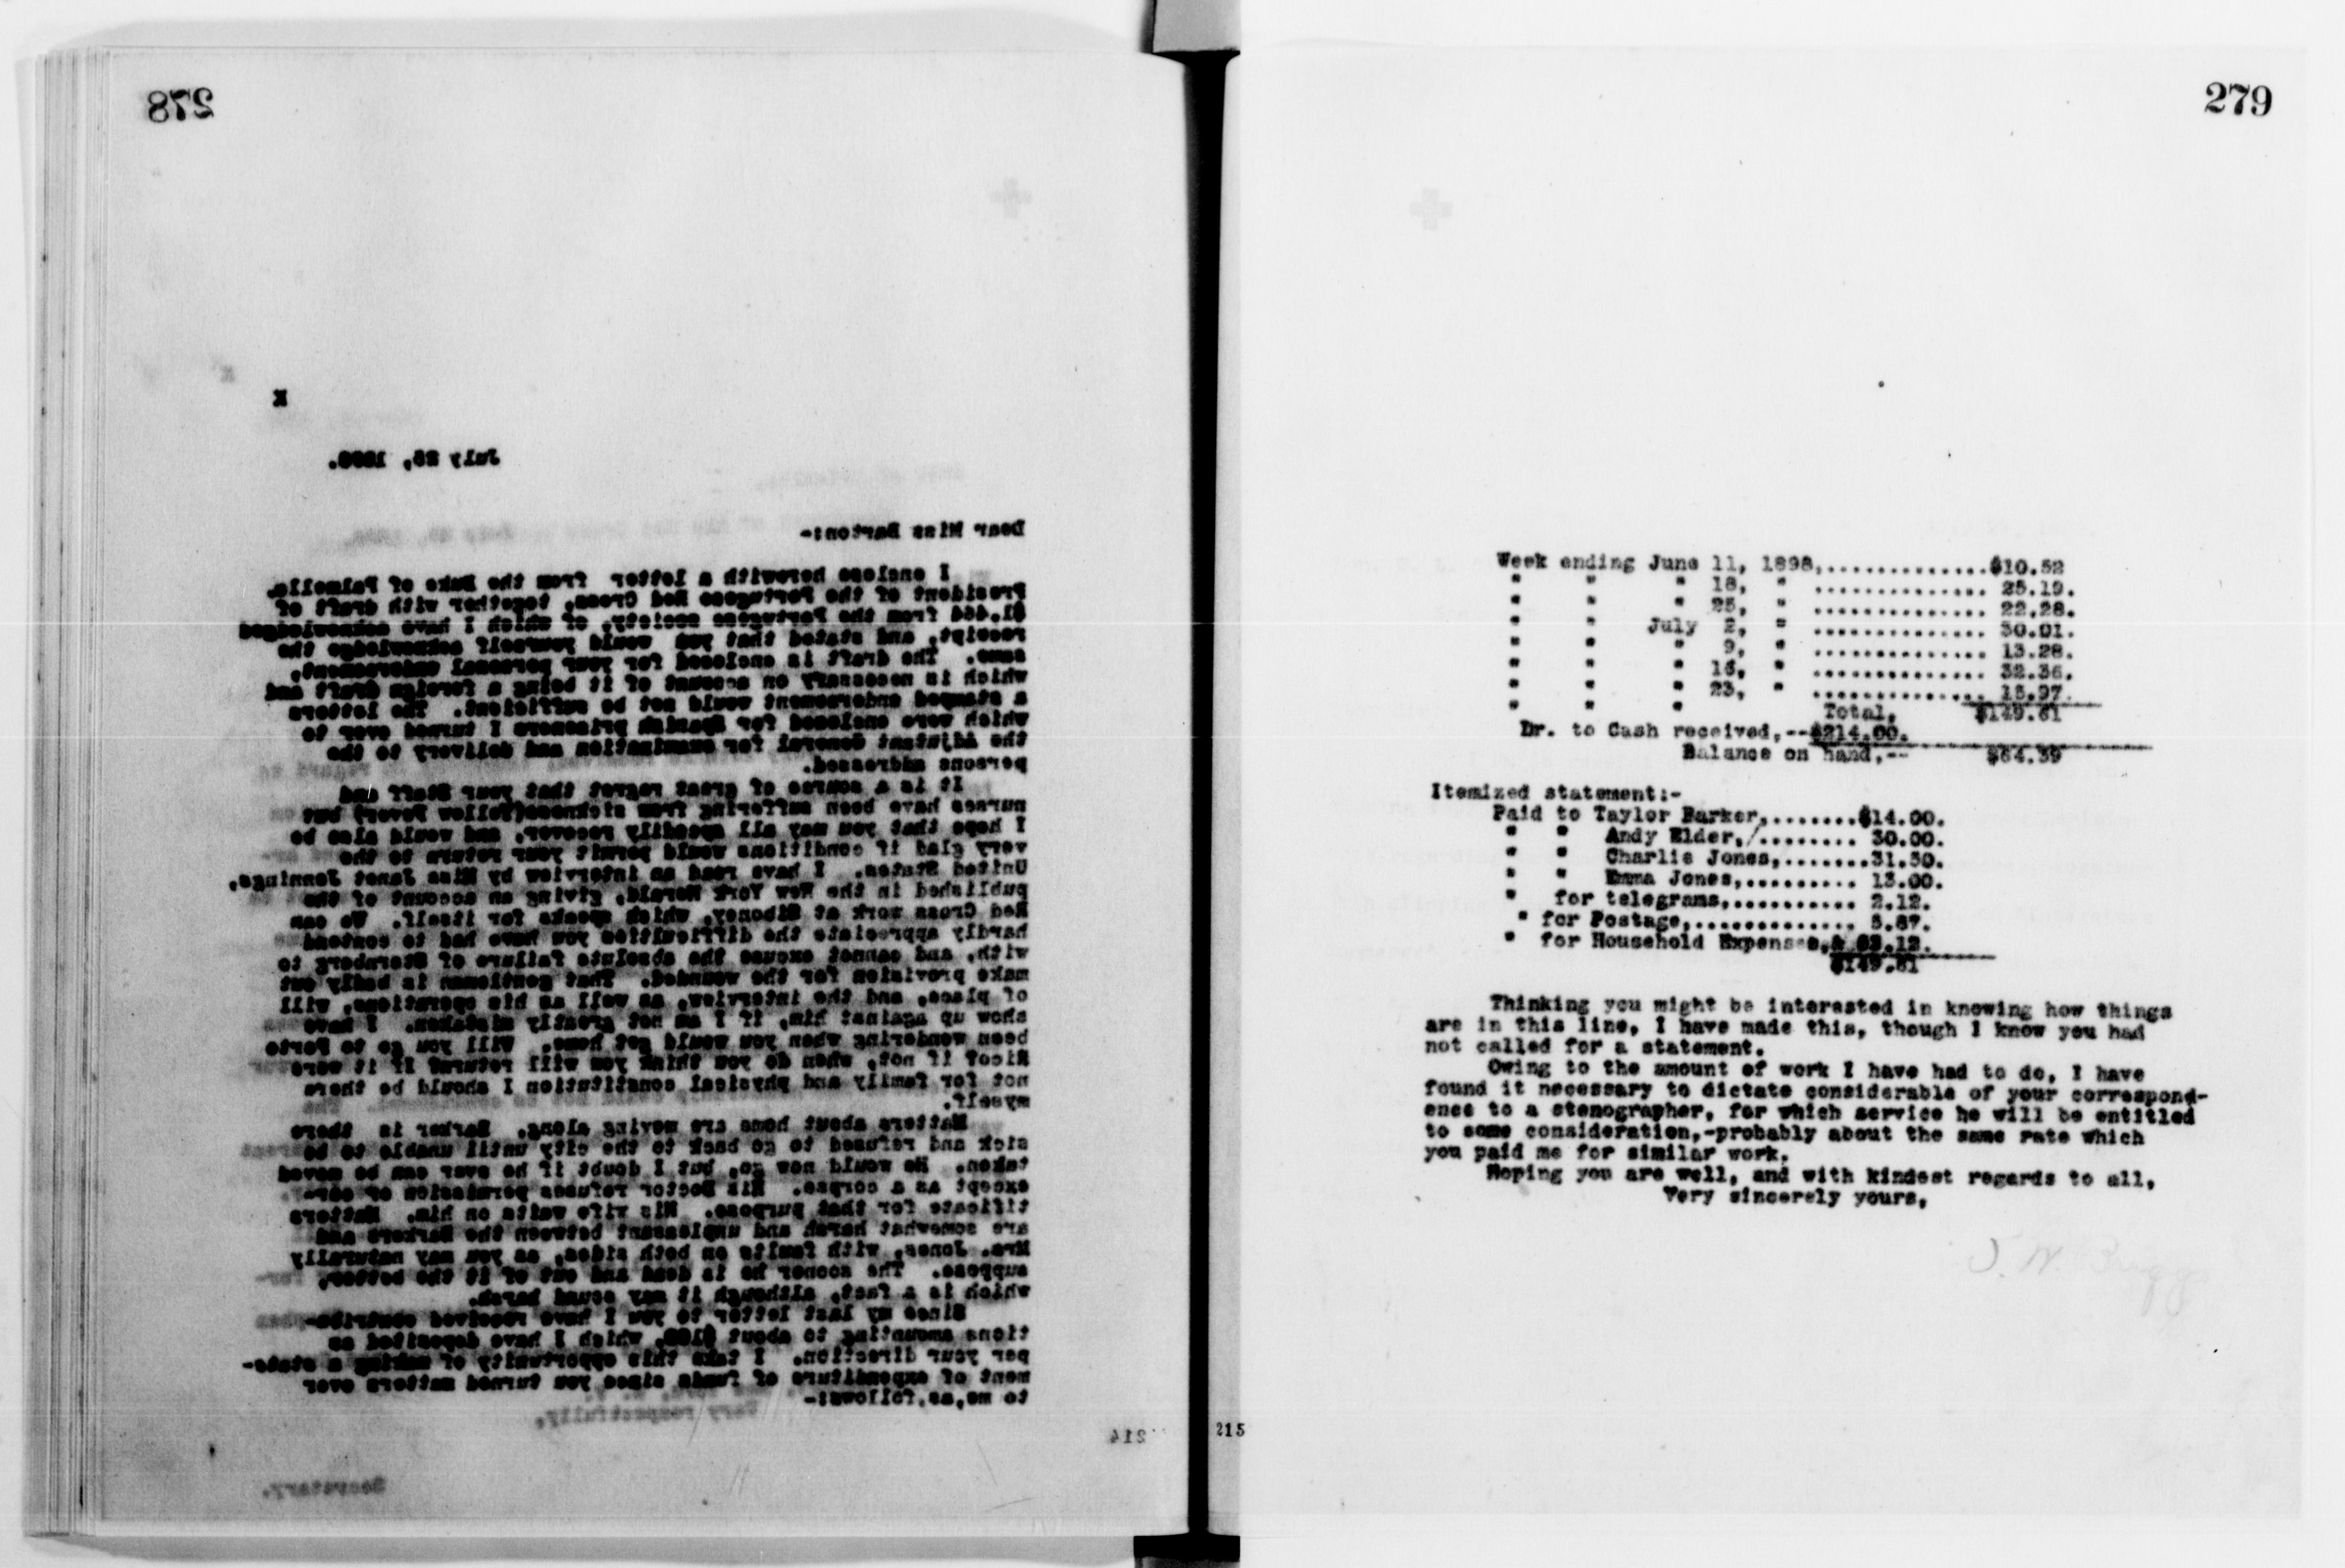 278
K
July 25, 1898.
Dear Miss Barton:-
I enclose herewith a letter from the Duke of Palmella,
President of the Portugese Red Cross, together with draft of
$1.464 from the Portugese society, of which I have acknowledged
receipt, and stated that you would yourself acknowledge the
same. The draft is enclosed for your personal endorsement,
which is necessary on account of it being a foreign draft and
a stamped endorsement would not be sufficient. The letters
which were enclosed for Spanish prisoners I turned over to
the Adjutant General for examination and delivery to the
persons addressed.
It is a source of great regret that your Staff and
nurses have been suffering from sickness(Yellow Fever) but
I hope that you may all speedily recover, and would also be
very glad if conditions would permit your return to the
United States. I have read an interview by Miss Janet Jennings,
published in the New York Herald, giving an account of the
Red Cross work at Siboney, which speaks for itself. We can
hardly appreciate the difficulties you have had to contend
with, and cannot excuse the absolute failure of Sternberg to
make provision for the wounded. That gentleman is badly out
of place, and the interview, as well as his operations, will
show up against him, if I am not greatly mistaken. I have
been wondering when you would get home. Will you go to Porto
Rico? if not, when do you think you will return? If it were
not for family and physical constitution I should be there
myself.
Matters about home are moving along. Barker is there
sick and refused to go back to the city until unable to be
taken. He would now go, but I doubt if he ever can be moved
except as a corpse. His Doctor refuses permission or cer-
tificate for that purpose. His wife waits on him. Matters
are somewhat harsh and unpleasant between the Barkers and
Mrs. Jones, with faults on both sides, as you may naturally
suppose. The sooner he is dead and out of it the better,
which is a fact, although it may sound harsh.
Since my last letter to you I have received contribu-
tions amounting to about $100, which I have deposited as
per your direction. I take this opportunity of making a state-
ment of expenditure of funds since you turned matters over
to me,as,follows:-
Very respectfully,
214
Secretary.
279
Week ending June 11, 1898,..............$10.52
" " " 18, " .............. 25.19.
" " " 25, " .............. 22.28.
" " July 2, " .............. 30.01.
" " " 9, " .............. 13.28.
" " " 16, " .............. 32.36.
" " " 23, " .............. 15.97.
" " " Total, $149.61
Dr. to Cash received,--$214.00.
Balance on hand,-- $64.39
Itemized statement:-
Paid to Taylor Barker,........$14.00.
" " Andy Elder,/........ 30.00.
" " Charlie Jones,.......31.50.
" " Emma Jones,.......... 13.00.
" for telegrams,........... 2.12.
" for Postage,.............. 5.87.
" for Household Expenses, 53.12.
$149.61
Thinking you might be interested in knowing how things
are in this line, I have made this, though I know you had
not called for a statement.
Owing to the amount of work I have had to do, I have
found it necessary to dictate considerable of your correspond-
ence to a stenographer, for which service he will be entitled
to some consideration,-probably about the same rate which
you paid me for similar work.
Hoping you are well, and with kindest regards to all,
Very sincerely yours,
215